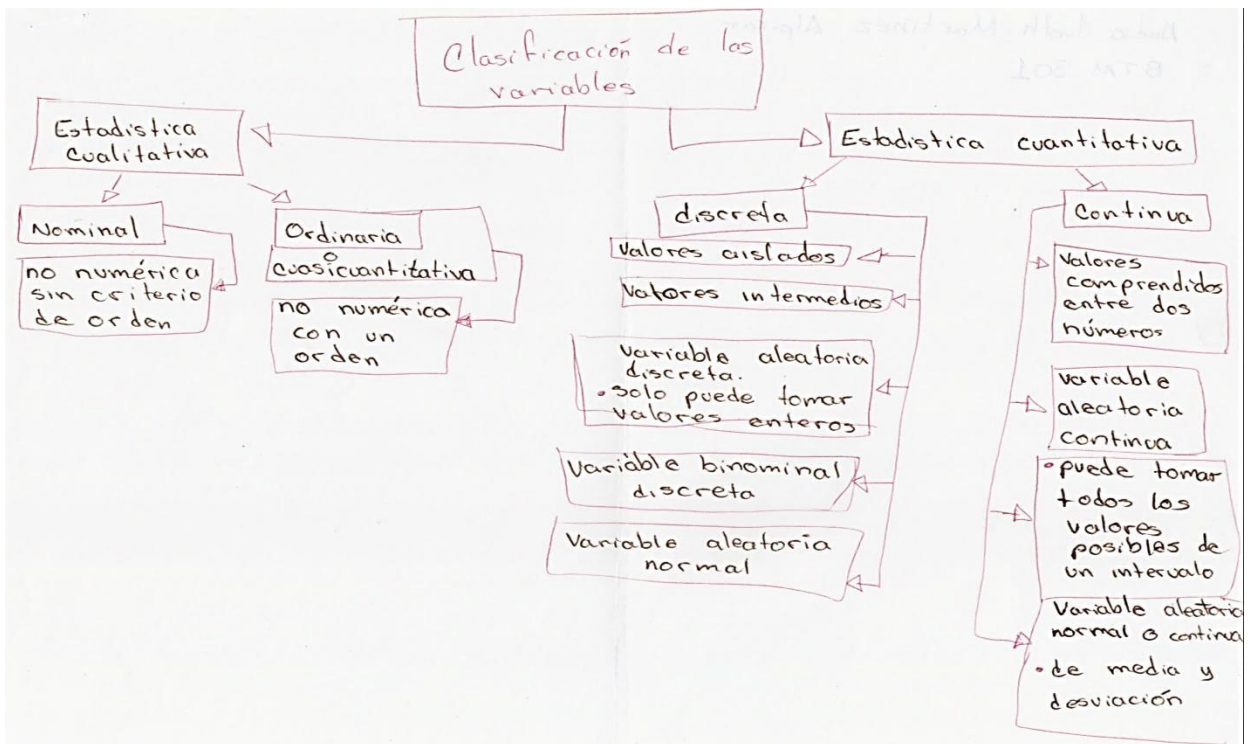 Clasificación de las
variables
Estadistica
cualitativa
Nominal
no numérica
sin criterio
de orden
Ordinaria
o
cuasicuantitativa
no numérica
con un
orden
Estadistica cuantitativa
discreta
Valores aislados
Valores intermedios
variable aleatoria
discreta.
• solo puede tomar
valores enteros
Variable binominal
discreta
Variable aleatoria
normal
Continua
Valores
comprendidos
entre dos
números
variable
aleatoria
continua
• puede tomar
todos los
valores
posibles de
un intervalo
Variable aleatoria
normal o continua
• de media y
desviación